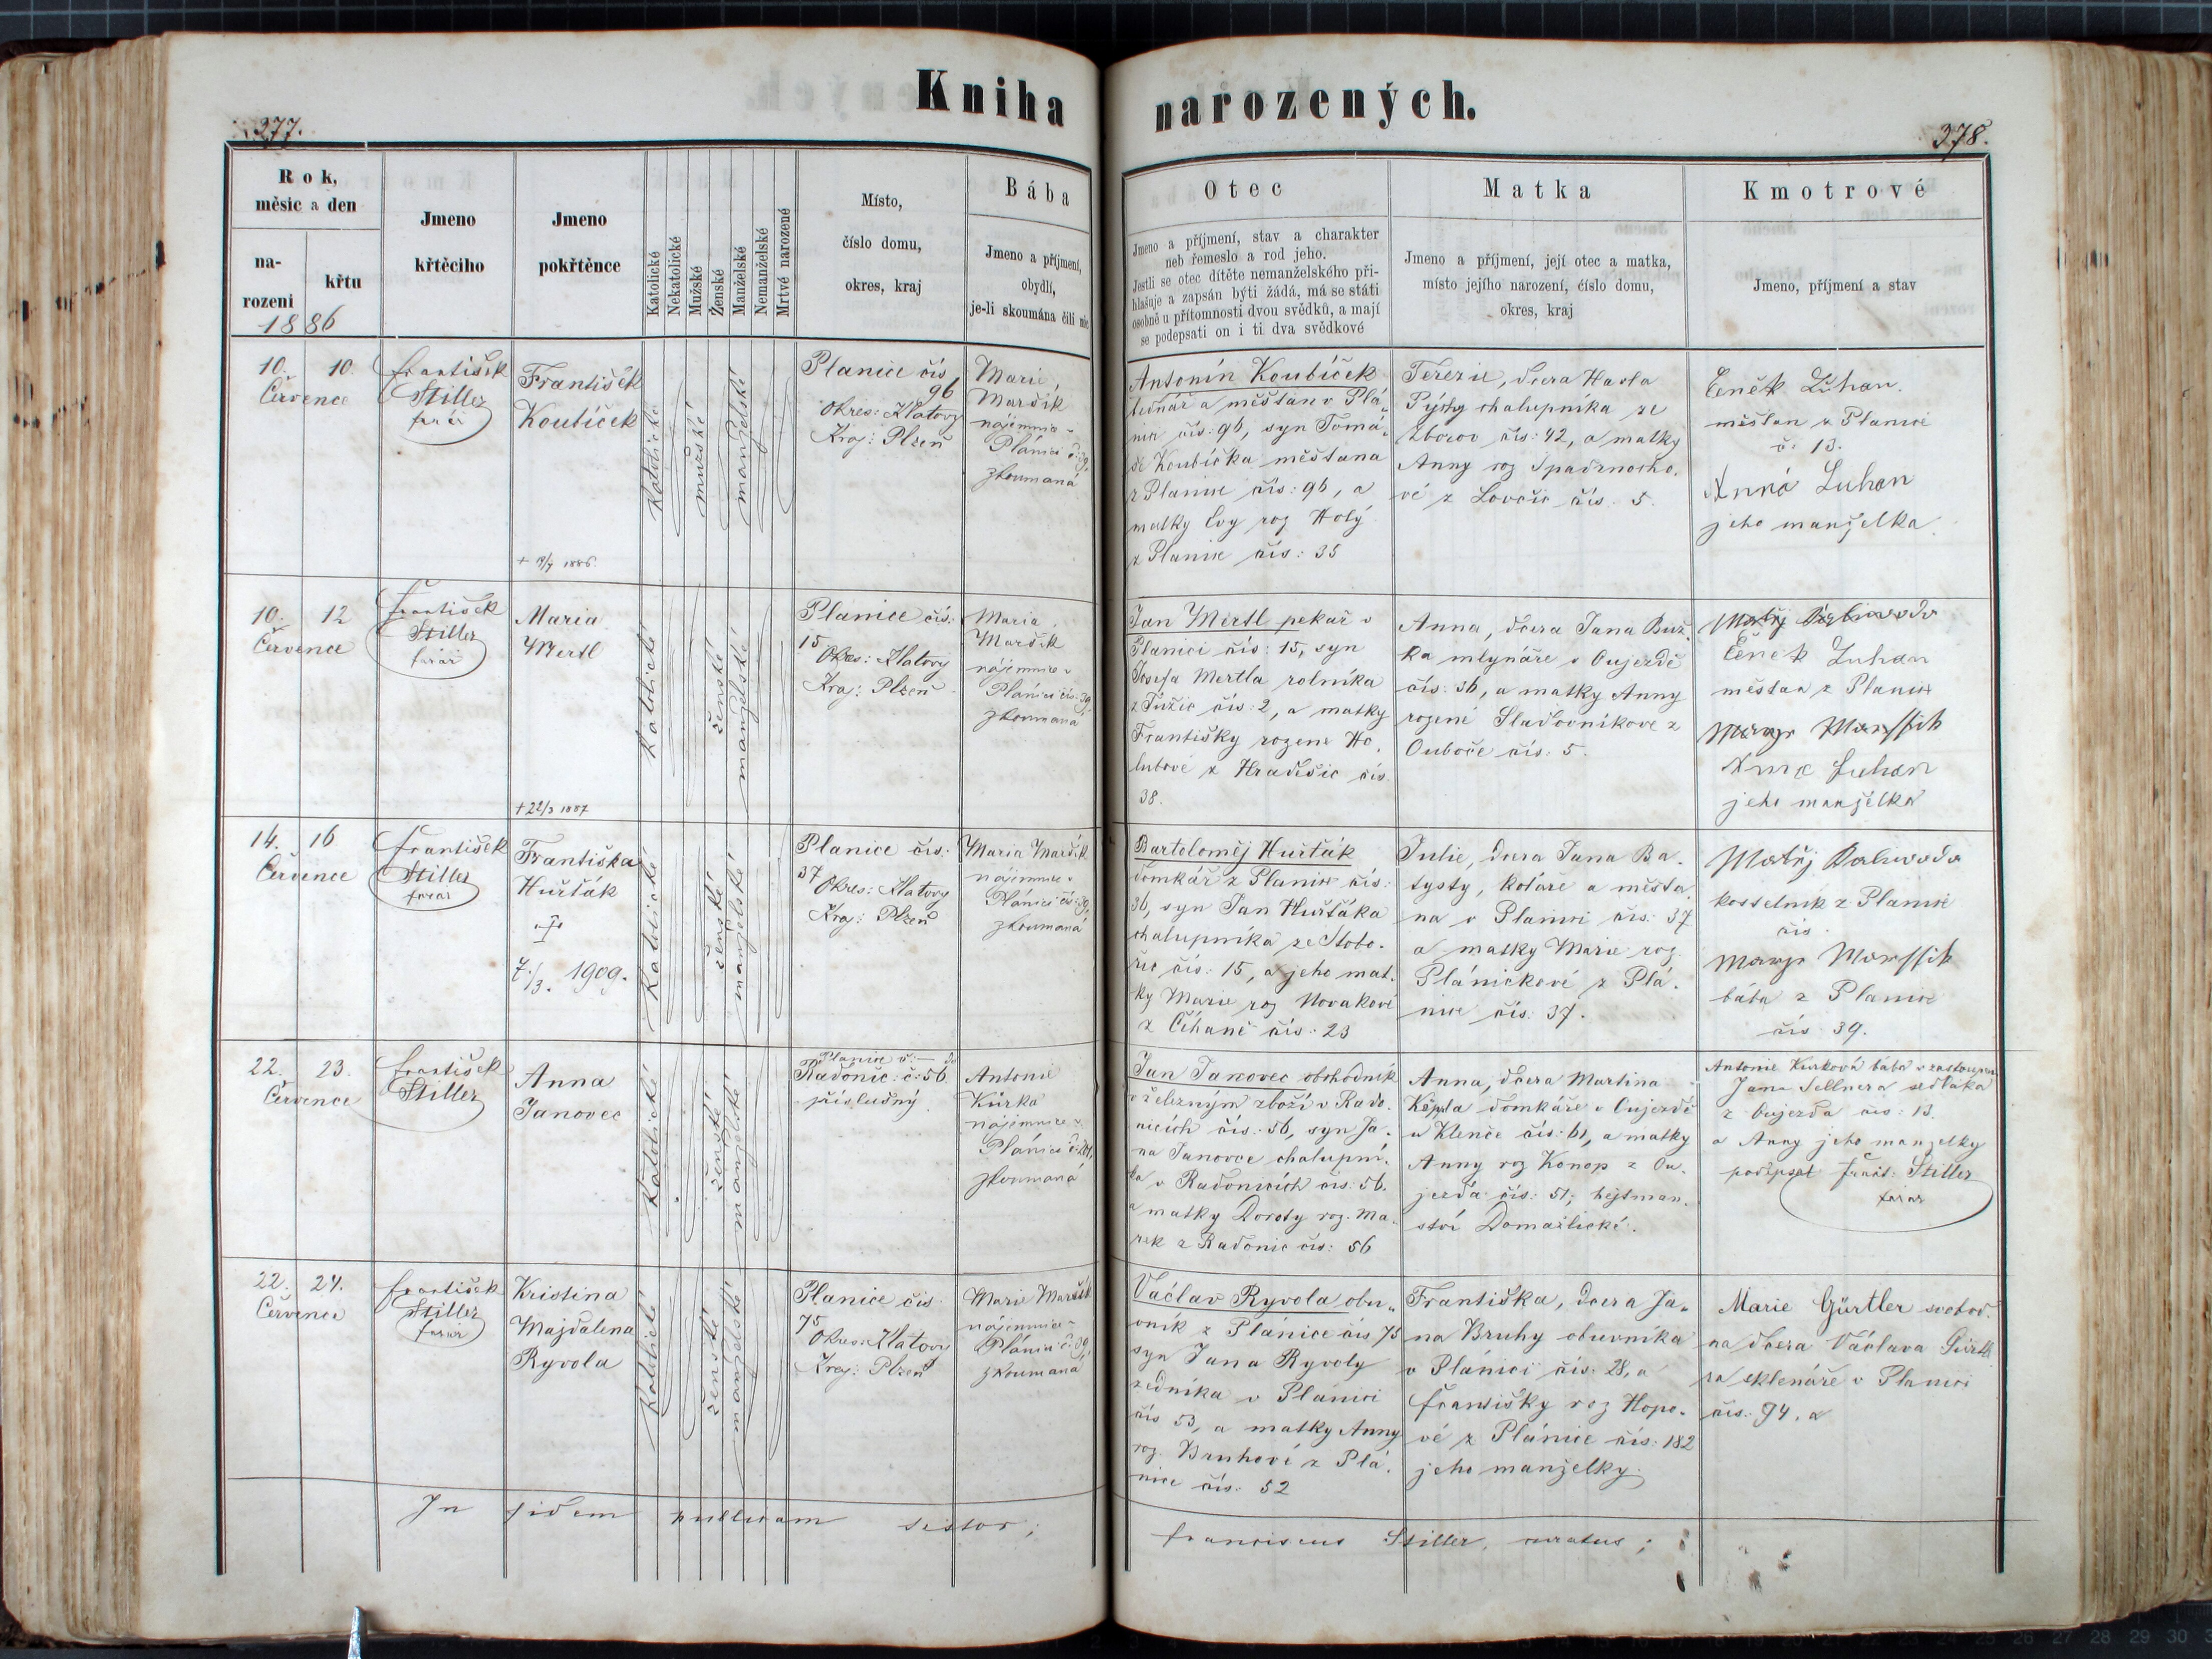 Kniha narozených.
377.
378.
Rok,
měsíc a den
na-
rozeni
křtu
1886
Jmeno
křtěcího
Jmeno
pokřtěnce
Katolické
Nekatolické
Mužské
Ženské
Manželské
Nemanželské
Mrtvé narozené
Místo,
číslo domu,
okres, kraj
Bába
Jmeno a příjmení,
obydlí,
je-li skoumána čili nic
Otec
Jmeno a příjmení, stav a charakter
neb řemeslo a rod jeho.
Jestli se otec dítěte nemanželského při-
hlašuje a zapsán býti žádá, má se státi
osobně u přítomnosti dvou svědků, a mají
se podepsati on i ti dva svědkové
Matka
Jmeno a příjmení, její otec a matka,
místo jejího narození, číslo domu,
okres, kraj
Kmotrové
Jmeno, příjmení a stav
10. 10.
Července
František
Stiller
farář
František
Koubíček
+ 1886.
Katolické
mužské
manželské
Planice čís
96
Okres: Klatovy
Kraj: Plzeň
Marie,
Maršík
nájemnice v
Plánici č: 39,
zkoumaná
Antonín Koubíček
měšťan v Plá-
nici čís: 96, syn Tomá-
še Koubíčka měšťana
z Planice čís: 96, a
matky Evy roz Holý
z Planice čís: 35
Terezie, dcera Havla
chalupníka ze
Zborov čís: 42, a matky
Anny roz
vé z Lovčic čís. 5.
Čeněk Luhan.
měšťan z Planice
č: 13.
Anna Luhan
jeho manželka.
10. 12
Července
František
Stiller
farář
Maria
Mertl
+ 22/3 1887
Katolické
ženské
manželské
Planice čís.
15
Okres: Klatovy
Kraj: Plzeň
Maria,
Maršík
nájemnice v
Plánici čís: 39,
zkoumaná
Jan Mertl pekař v
Planici čís: 15, syn
Josefa Mertla rolníka
z Tužic čís: 2, a matky
Františky rozene Ho-
lubové z Hradešic čís.
38.
Anna, dcera Jana Buž-
ka mlynáře v Oujezdě
čís: 36, a matky Anny
rozené Sladovníkove z
Ouboče čís: 5.
Matěj
Čeněk Luhan
měšťan z Planice
Marye Marssik
Anna Luhan
jeho manželka
14. 16
Července
František
Stiller
farář
Františka
Huřťák
7./3. 1909.
Katolické
ženské
manželské
Planice čís.
37
Okres: Klatovy
Kraj: Plzeň
Maria Maršík
nájemnice v
Plánici čís: 39,
zkoumaná
Bartoloměj Huřťák
domkář z Planice čís:
36, syn Jan Huřťáka
chalupníka ze Stobo-
řic čís: 15, a jeho mat-
ky Marie roz Novakové
z Číhaně čís: 23
Julie, dcera Jana Ba-
tysty, koláře a měšťa-
na v Planici čís: 37
a matky Marie roz.
Pláničkové z Plá-
nice čís: 37.
Matěj
kostelník z Planice
čís.
Marye Marssik
bába z Planice
čís 39.
22. 23.
Července
František
Stiller
Anna
Janovec
Katolické
ženské
manželské
Planice č: — do
Radonic: č: 56
příslušný
Antonie
Kůrka
nájemnice v
Plánici
zkoumaná
Jan Janovec obchodník
v železným zboží v Rado-
nicích čís: 56, syn Ja-
na Janovce chalupní-
ka v Radonicích čís: 56.
a matky Doroty roz. Ma-
rek z Radonic čís: 56
Anna, dcera Martina
domkáře v Oujezdě
u Klenče čís: 61, a matky
Anny roz Konop z Ou-
jezda čís: 51; hejtman-
ství Domažlické.
Antonie Kurková bába v zastoupení
Jana Sellnera sedláka
z Oujezda čís: 13.
a Anny jeho manželky
podepsal Frant: Stiller
farář
22. 24.
Července
František
Stiller
farář
Kristina
Majdalena
Ryvola
Katolické
ženské
manželské
Planice čís.
75
Okres: Klatovy
Kraj: Plzeň
Marie Maršík
nájemnice v
Plánici č: 39,
zkoumaná
Václav Ryvola obu-
vník z Plánice čís 75
syn Jana Ryvoly
zedníka v Plánici
čís 53, a matky Anny
roz. Bruhové z Plá-
nice čís. 52
Františka, dcera Ja-
na Bruhy obuvníka
v Plánici čís: 28, a
Františky roz Hopo-
vé z Plánice čís: 182
jeho manželky.
Marie Gürtler svobod-
na dcera Václava Gürtl
ra sklenáře v Planici
čís: 94. a
In fidem publicam sistor;
Franciscus Stiller, curatus;